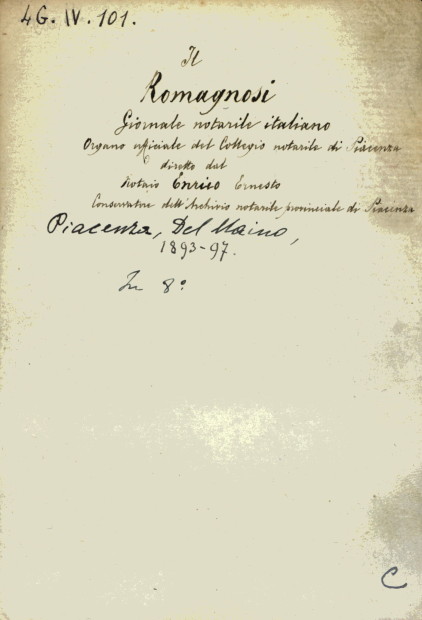 4G. IV. 101.
Il
Romagnosi
Giornale notarile italiano
Organo ufficiale del Collegio notarile di Piacenza
diretto dal
Notaio Enrico Ernesto
Conservatore dell'Archivio notarile provinciale di Piacenza
Piacenza, Del Maino,
1893-97.
In 8°
C